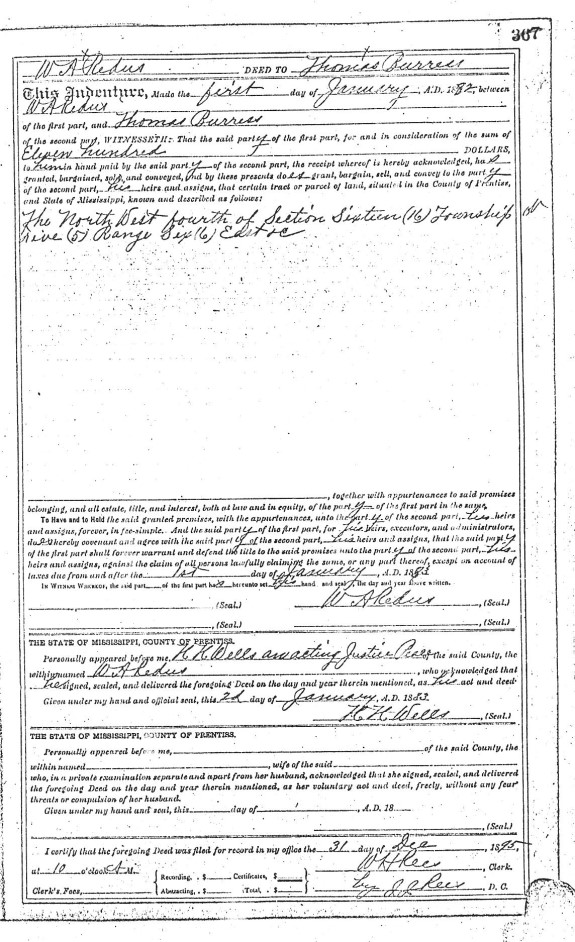 367
W A Redus DEED TO Thomas Burress
This Indenture, Made the first day of January A.D. 1882, between
W A Redus
of the first part, and Thomas Burress
of the second part, WITNESSETH: That the said party of the first part, for and in consideration of the sum of
Eleven hundred DOLLARS,
to him in hand paid by the said party of the second part, the receipt whereof is hereby acknowledged, has
granted, bargained, sold, and conveyed, and by these presents does grant, bargain, sell, and convey to the party
of the second part, his heirs and assigns, that certain tract or parcel of land, situated in the County of Prentiss,
and State of Mississippi, known and described as follows:
The North West fourth of Section Sixteen (16) Township
five (5) Range Six (6) East &c
, together with appurtenances to said premises
belonging, and all estate, title, and interest, both at law and in equity, of the party of the first part in the same.
To Have and to Hold the said granted premises, with the appurtenances, unto the party of the second part, his heirs
and assigns, forever, in fee-simple. And the said party of the first part, for his heirs, executors, and administrators,
do es hereby covenant and agree with the said party of the second part, his heirs and assigns, that the said party
of the first part shall forever warrant and defend the title to the said premises unto the party of the second part, his
heirs and assigns, against the claim of all persons lawfully claiming the same, or any part thereof, except on account of
taxes due from and after the 1st day of January, A.D. 1883
In Witness Whereof, the said part of the first part has hereunto set his hand and seal, the day and year above written.
(Seal.) W A Redus, (Seal.)
(Seal.) , (Seal.)
THE STATE OF MISSISSIPPI, COUNTY OF PRENTISS.
Personally appeared before me, H H Wells an acting Justice Peace of the said County, the
within named W A Redus, who acknowledged that
he signed, sealed, and delivered the foregoing Deed on the day and year therein mentioned, as his act and deed.
Given under my hand and official seal, this 2d day of January, A.D. 1883.
H H Wells (Seal.)
THE STATE OF MISSISSIPPI, COUNTY OF PRENTISS.
Personally appeared before me, of the said County, the
within named , wife of the said
who, in a private examination separate and apart from her husband, acknowledged that she signed, sealed, and delivered
the foregoing Deed on the day and year therein mentioned, as her voluntary act and deed, freely, without any fear
threats or compulsion of her husband.
Given under my hand and official seal, this day of , A.D. 18
, (Seal.)
I certify that the foregoing Deed was filed for record in my office the 31 day of Dec, 1895,
at 10 o'clock A M. W H Rees, Clerk.
Clerk's Fees, Recording, $ Certificates, $
Abstracting, $ Total, $ by J J Rees, D. C.